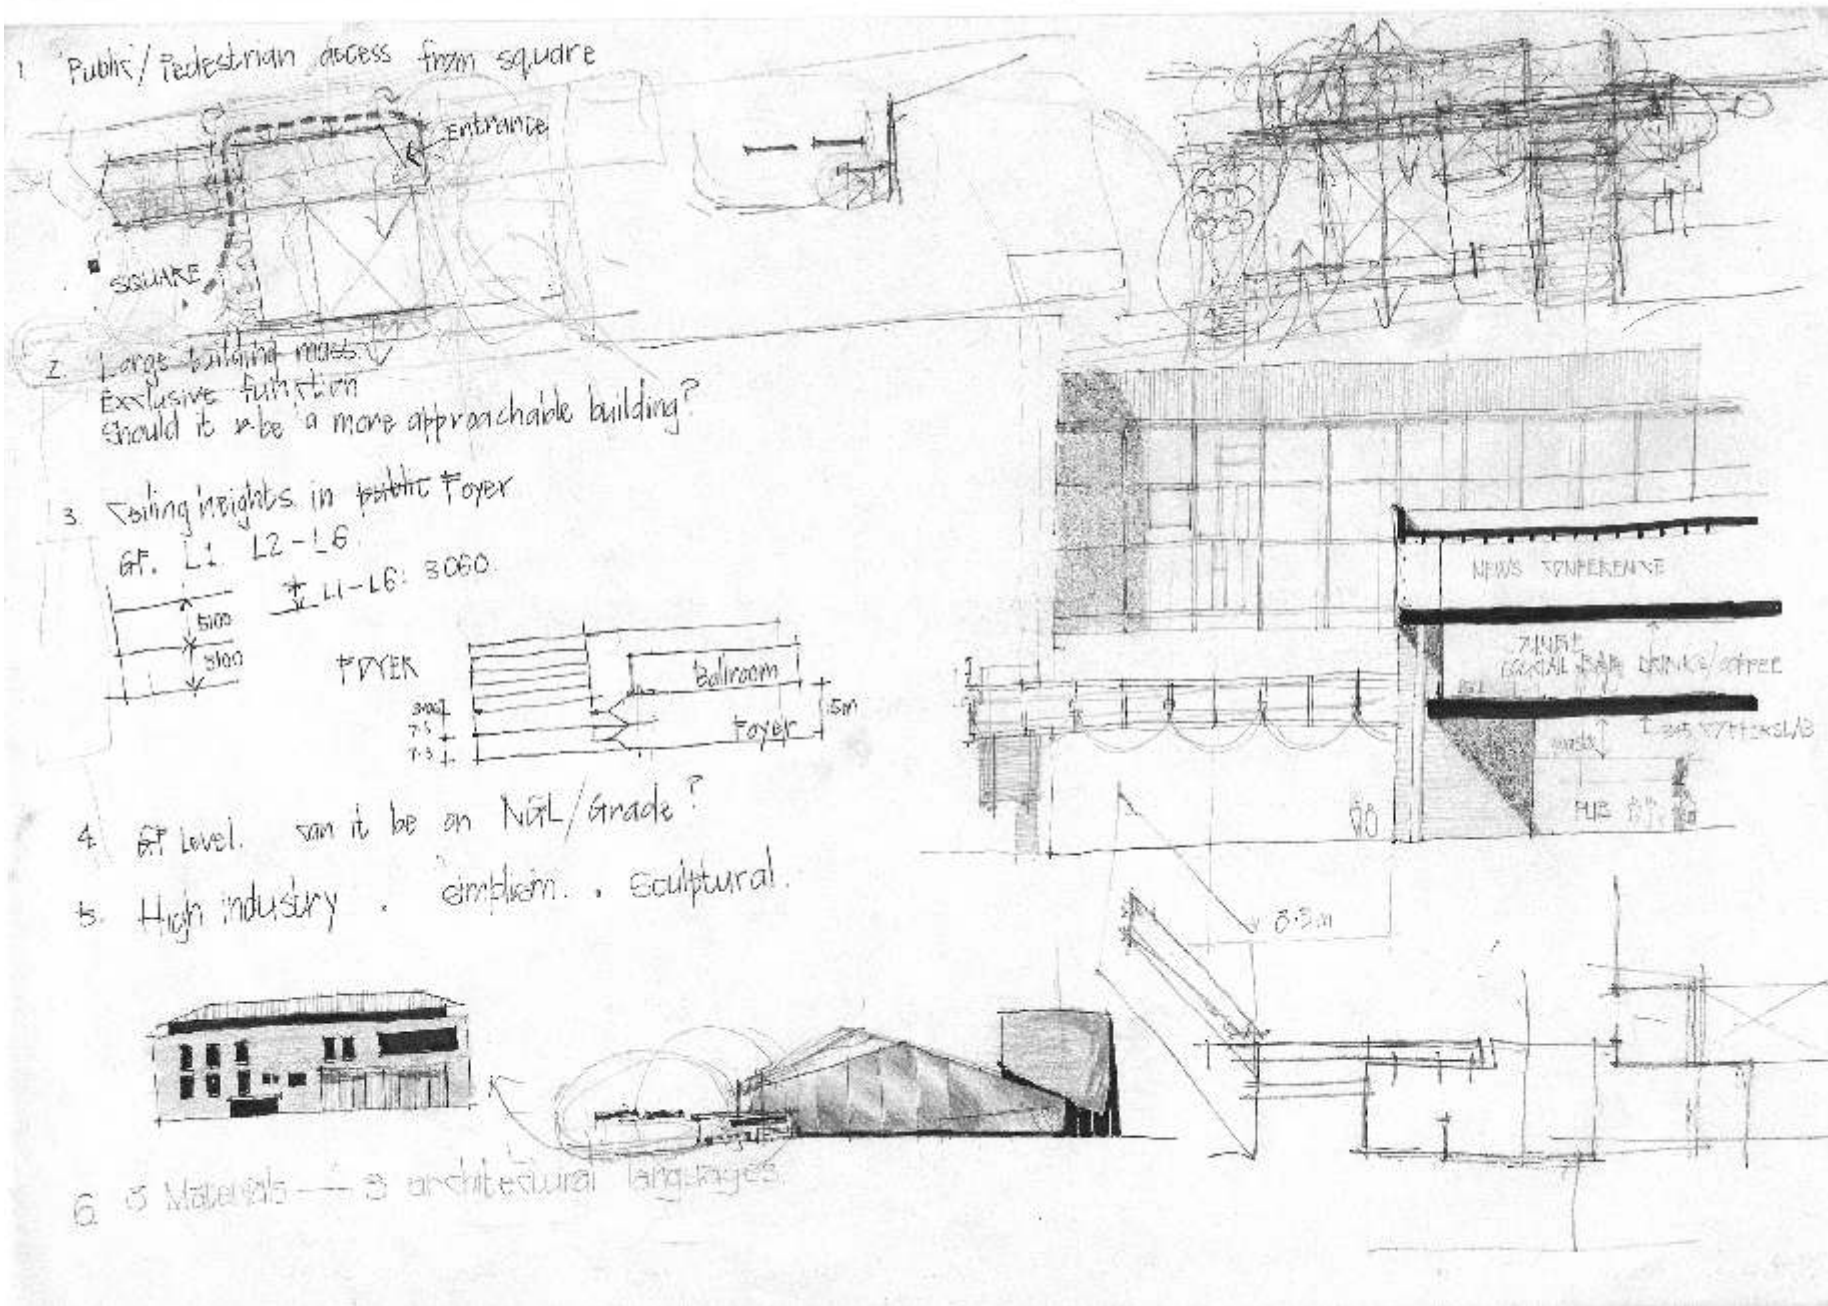 1 Public/Pedestrian access from square
Entrance
SQUARE
2 Large building mass.
Exclusive function
Should it be a more approachable building?
3. Ceiling heights in public Foyer
GF. L1 L2-L6.
L1-L6: 3060.
5100
5100
FOYER
Ballroom
Foyer
5m
4 GF Level. can it be on NGL/Grade?
5. High industry . . Sculptural.
NEWS CONFERENCE
BAR DRINKS/COFFEE
PUB
3.3m
6 3 Materials - 3 architectural languages.